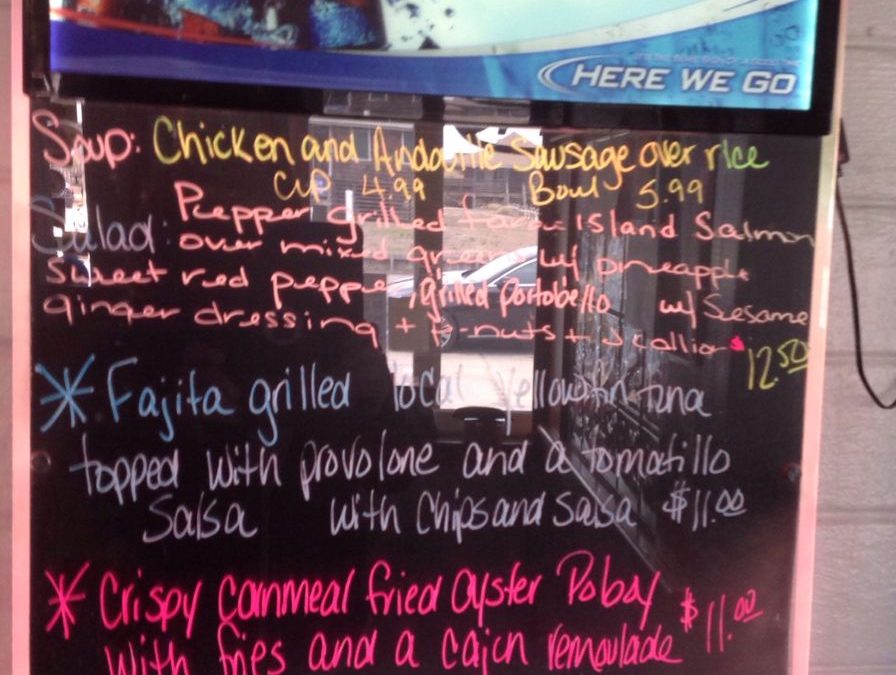 HERE WE GO
Soup: Chicken and Andouille Sausage over rice
Cup 4.99 Bowl 5.99
Pepper grilled Island Salmon
Salad: over mixed greens w/ pineapple
sweet red pepper, grilled portobello w/ Sesame
ginger dressing + P-nuts + scallions
12.50
* Fajita grilled local Yellowfin Tuna
topped with provolone and a tomatillo
Salsa with chips and salsa $11.00
* Crispy cornmeal fried oyster Poboy $11.00
with fries and a cajun remoulade